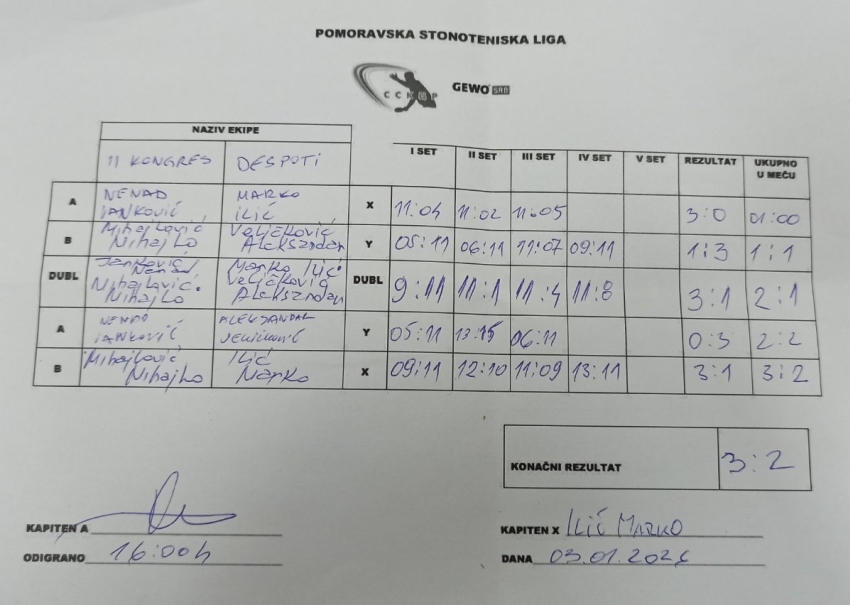 POMORAVSKA STONOTENISKA LIGA
CCKUP GEWO SRB
NAZIV EKIPE
II KONGRES DESPOTI I SET II SET III SET IV SET V SET REZULTAT UKUPNO U MEČU
A NENAD JANKOVIĆ MARKO ILIĆ X 11:04 11:02 11:05 3:0 01:00
B Mihajlović Mihajlo Veličković Aleksandar Y 05:11 06:11 11:07 09:11 1:3 1:1
DUBL Janković Nenad Mihajlović Mihajlo Marko Ilić Veličković Aleksandar DUBL 9:11 11:1 11:4 11:8 3:1 2:1
A NENAD JANKOVIĆ ALEKSANDAR Y 05:11 13:15 06:11 0:3 2:2
B Mihajlović Mihajlo Ilić Marko X 09:11 12:10 11:09 13:11 3:1 3:2
KONAČNI REZULTAT 3:2
KAPITEN A
KAPITEN X ILIĆ MARKO
ODIGRANO 16:00h
DANA 03.01.2026